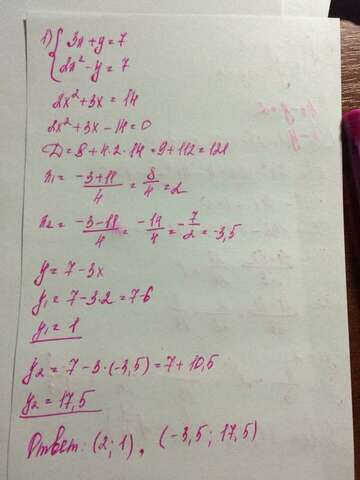 1) { 3x+y=7
2x²-y=7
2x²+3x=14
2x²+3x-14=0
D=9+4·2·14=9+112=121
x₁= (-3+11)/4 = 8/4 =2
x₂= (-3-11)/4 = -14/4 = -7/2 = -3,5
y=7-3x
y₁=7-3·2=7-6
y₁=1
y₂=7-3·(-3,5)=7+10,5
y₂=17,5
Ответ: (2; 1), (-3,5; 17,5)